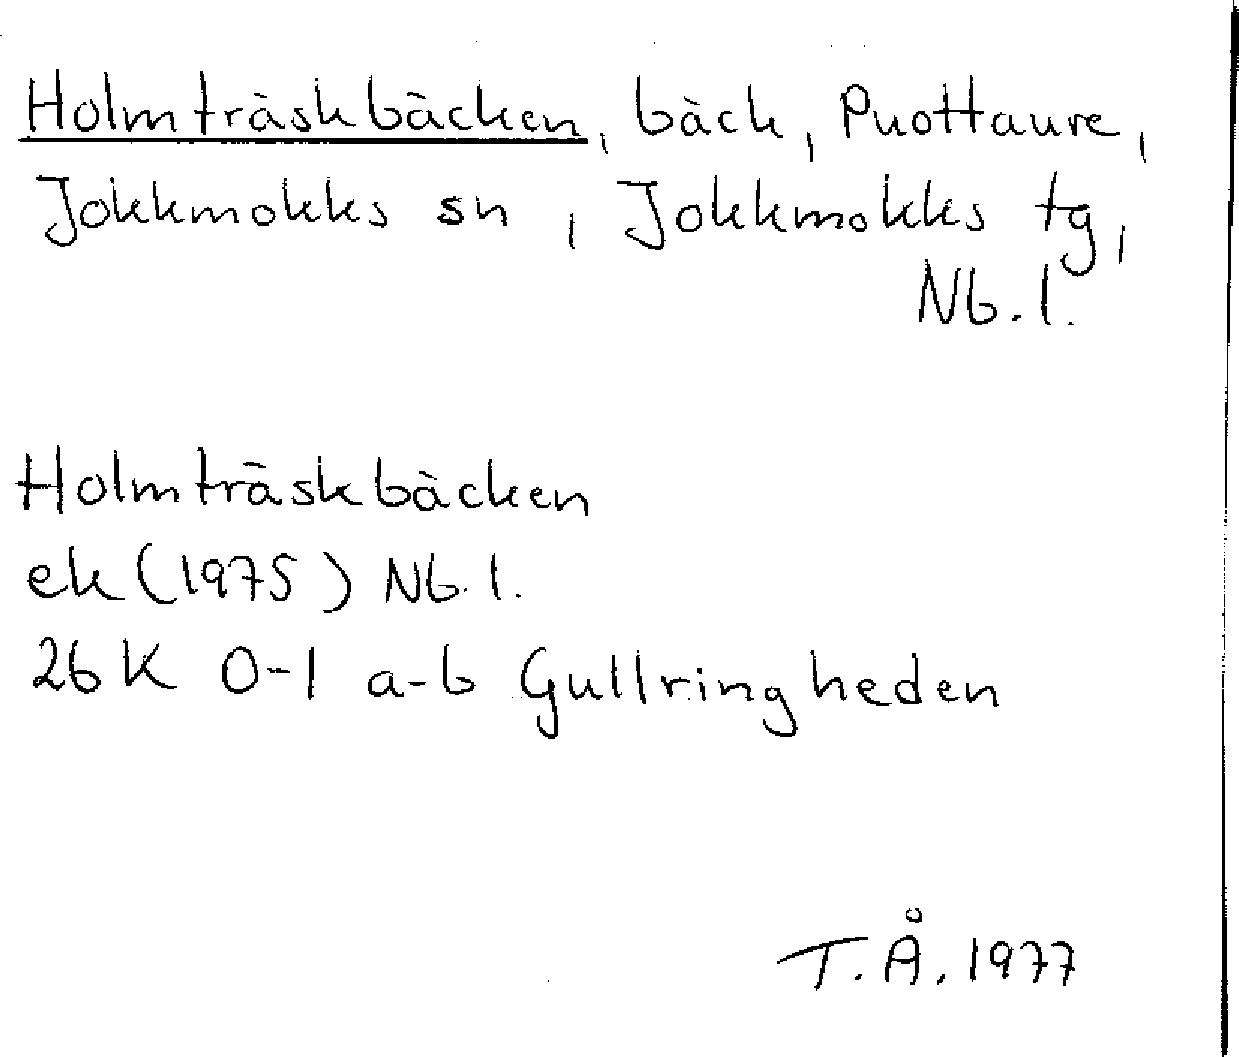 Holmträskbäcken, bäck, Puottaure,
Jokkmokks sn, Jokkmokks tg,
Nb. l.
Holmträskbäcken
ek (1975) Nb. l.
26 K 0-1 a-b Gullringheden
T. Å. 1977